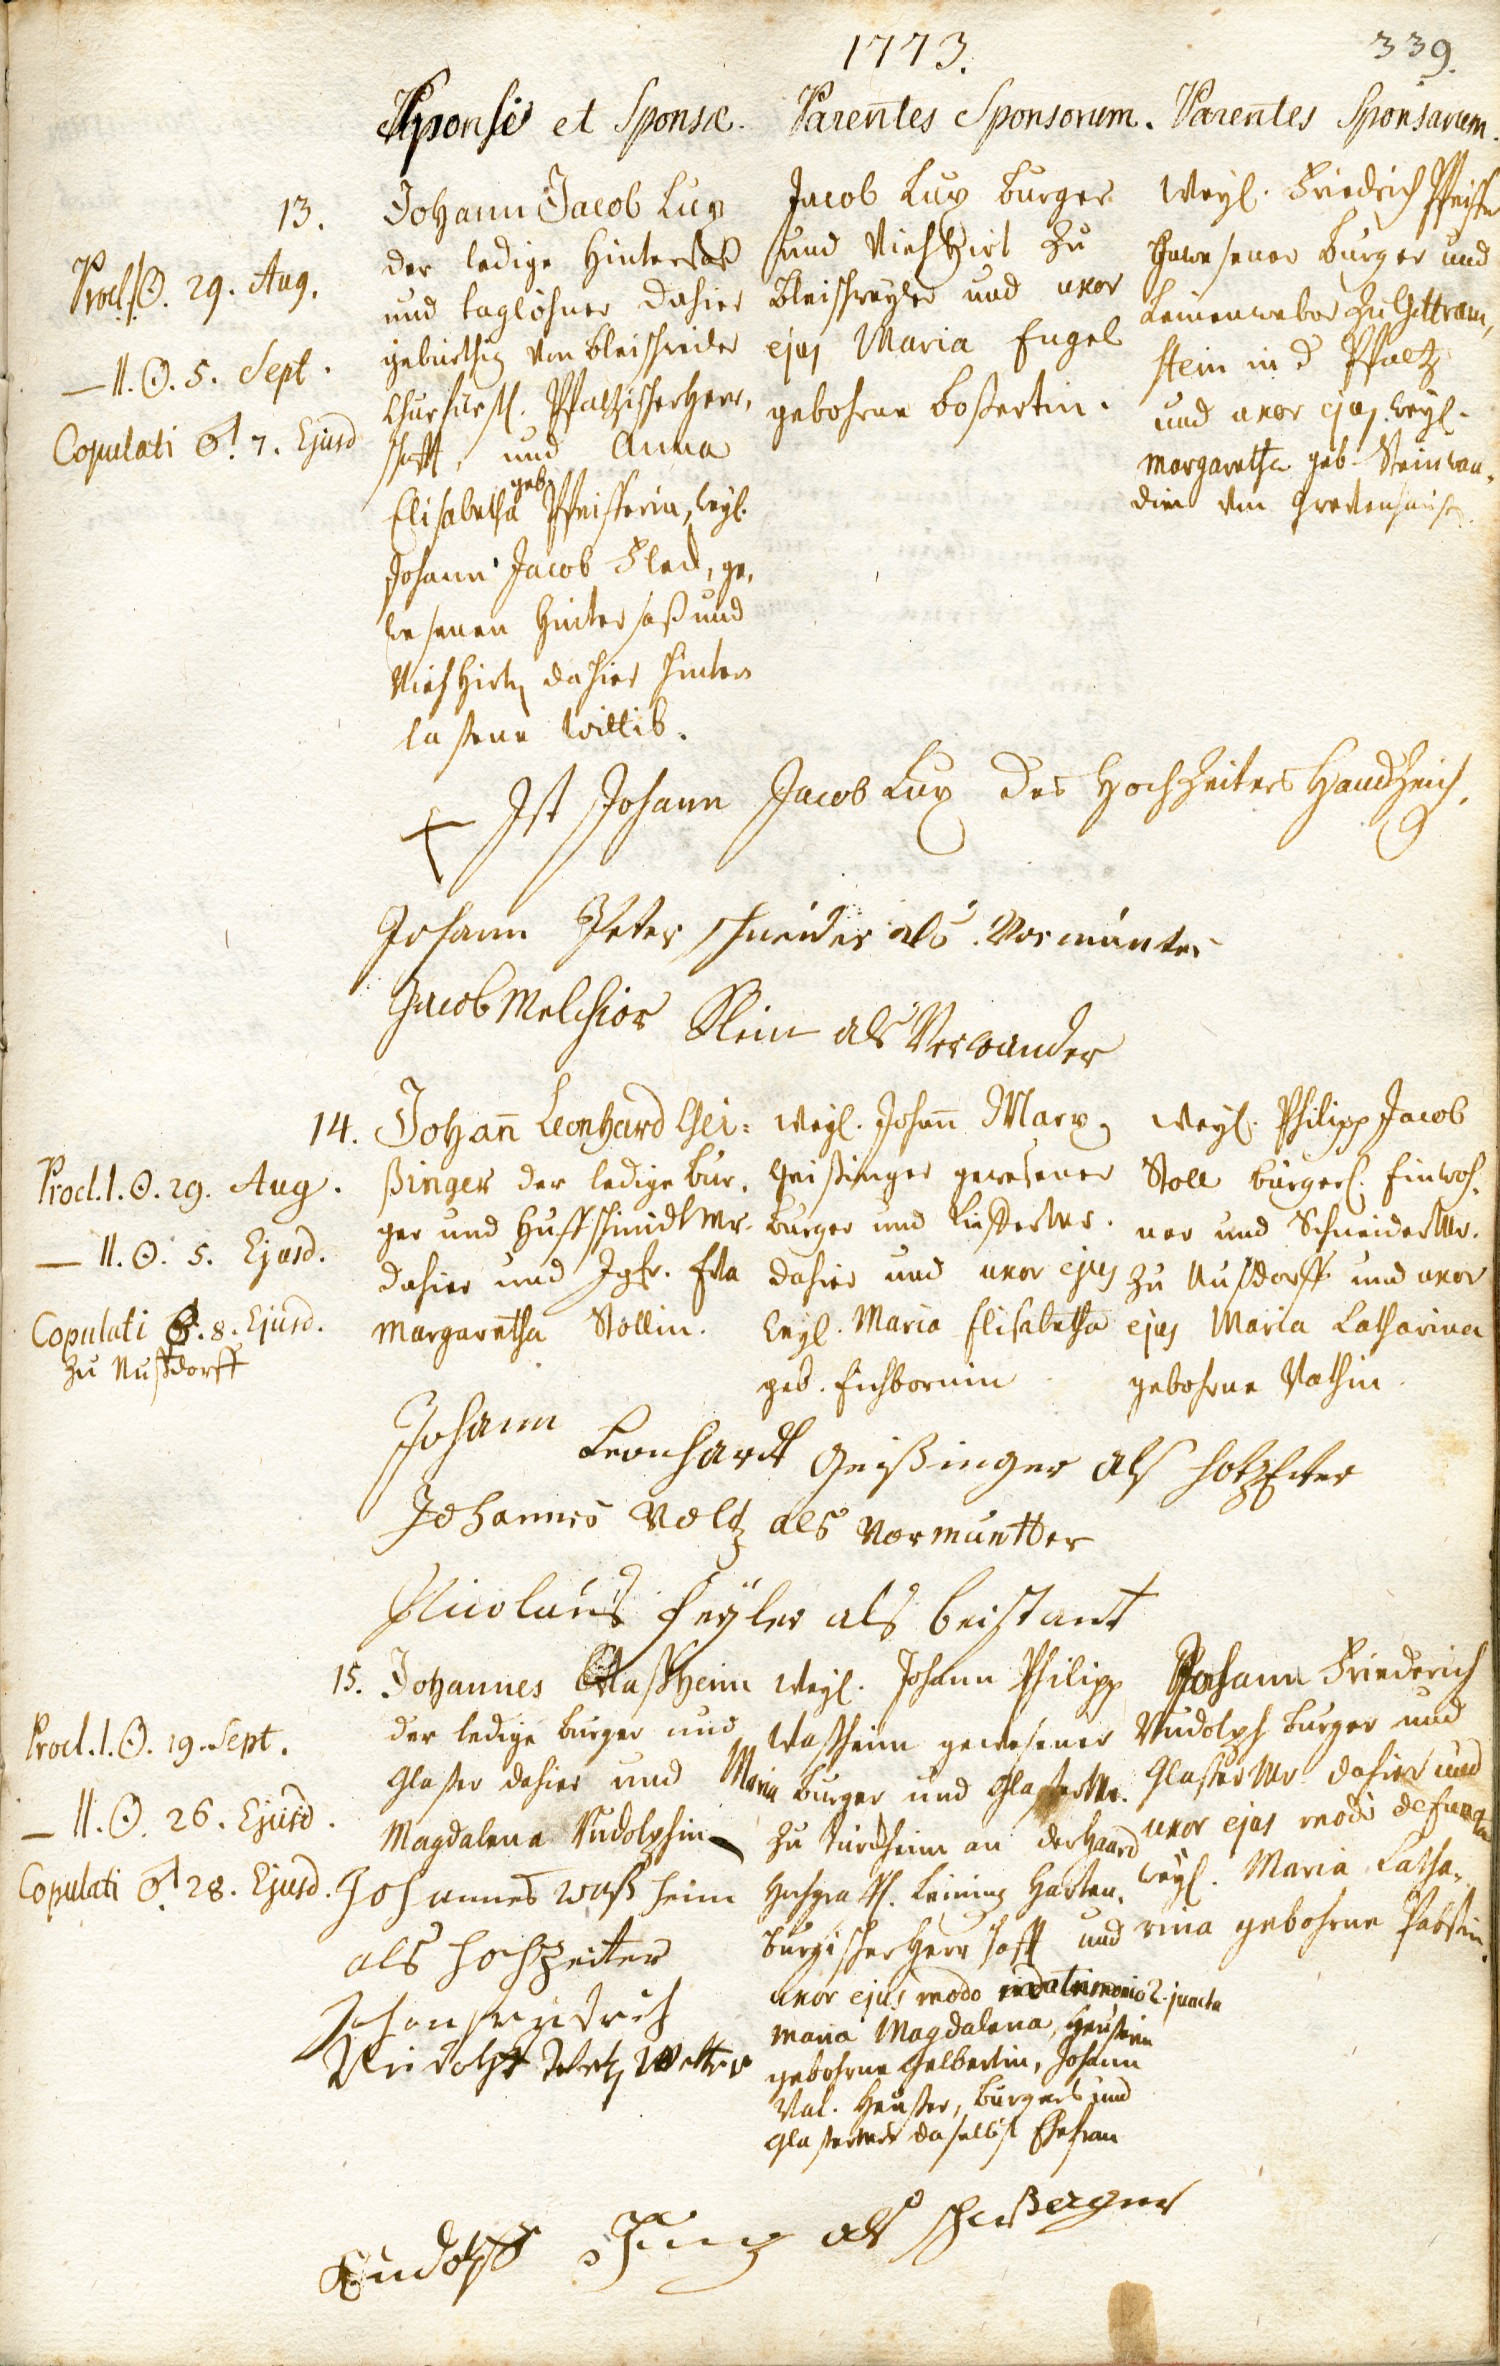 1773.
339.
Sponsi et Sponsæ. Parentes Sponsorum. Parentes Sponsarum.
13.
Procl. I. ⊙. 29. Aug.
— II. ⊙. 5. Sept.
Copulati ♂. 7. Ejusd
Johann Jacob Lux
der ledige Hintersaß
und taglöhner dahier
gebürthig von
Churfürstl. Pfaltzischer Herr,
schafft, und Anna
Elisabetha geb. Pfeifferin, weyl.
Johann Jacob Fled, ge,
wesenen Hintersaß und
Viehhirten dahier hinter
laßene Wittib.
Jacob Lux burger
und Viehhirt zu
Bleisweyler und uxor
ejus Maria Engel
gebohrne Boßertin.
Weyl. Friedrich Pfeiffer
gewesener burger und
Leinenweber zu
stein in d Pfaltz
und uxor ejus weyl.
Margaretha geb.
din von
+ Ist Johann Jacob Lux des Hochzeiters Handzeich,
Johann Peter schneider als Vormünter
Jacob Melchior Klein als Verwander
14.
Procl. I. ⊙. 29. Aug.
— II. ⊙. 5. Ejusd.
Copulati 8. Ejusd.
zu Nußdorff
Johan̄ Leonhard Gei=
ßinger der ledige bur,
ger und Huffschmidt Mr.
dahier und Jgfr. Eva
Margaretha Stollin.
Weyl. Johan̄ Marx
Geißinger gewesener
burger und Kieffer Mr.
dahier und uxor ejus
weyl. Maria Elisabetha
geb. Eichbornin
Weyl. Philipp Jacob
Stoll bürgerl. Einwoh,
ner und Schneider Mr.
zu Nußdorff und uxor
ejus Maria Catharina
gebohrne Vathin.
Johann Leonhardt Geißinger als hotzEiter
Johannes Voltz als Vormuntter
Nicolaus Feyler als beistant
15.
Procl. I. ⊙. 19. Sept.
— II. ⊙. 26. Ejusd.
Copulati ♂ 28. Ejusd.
Johannes Waßheim
der ledige burger und
Glaßer dahier und Maria
Magdalena Rudolphin
Johannes waßheim
als hochzeiter
Rudolph
Weyl. Johann Philipp
Waßheim gewesener
burger und Glaßer Mr.
zu Türckheim an der Haard
Hochgräffl. Leining Harten,
burgischer Herrschafft und
uxor ejus modo matrimonio 2. juncta
Maria Magdalena, Heußerin
gebohrne Gelbertin, Johann
Val. Heußer, burgers und
Glaßermrs daselbst Ehefrau
Johann Friederich
Rudolph burger und
Glaßer Mr dahier und
uxor ejus modo defuncta
weyl. Maria Catha,
rina gebohrne Pabstin.
Rudolff Jung als